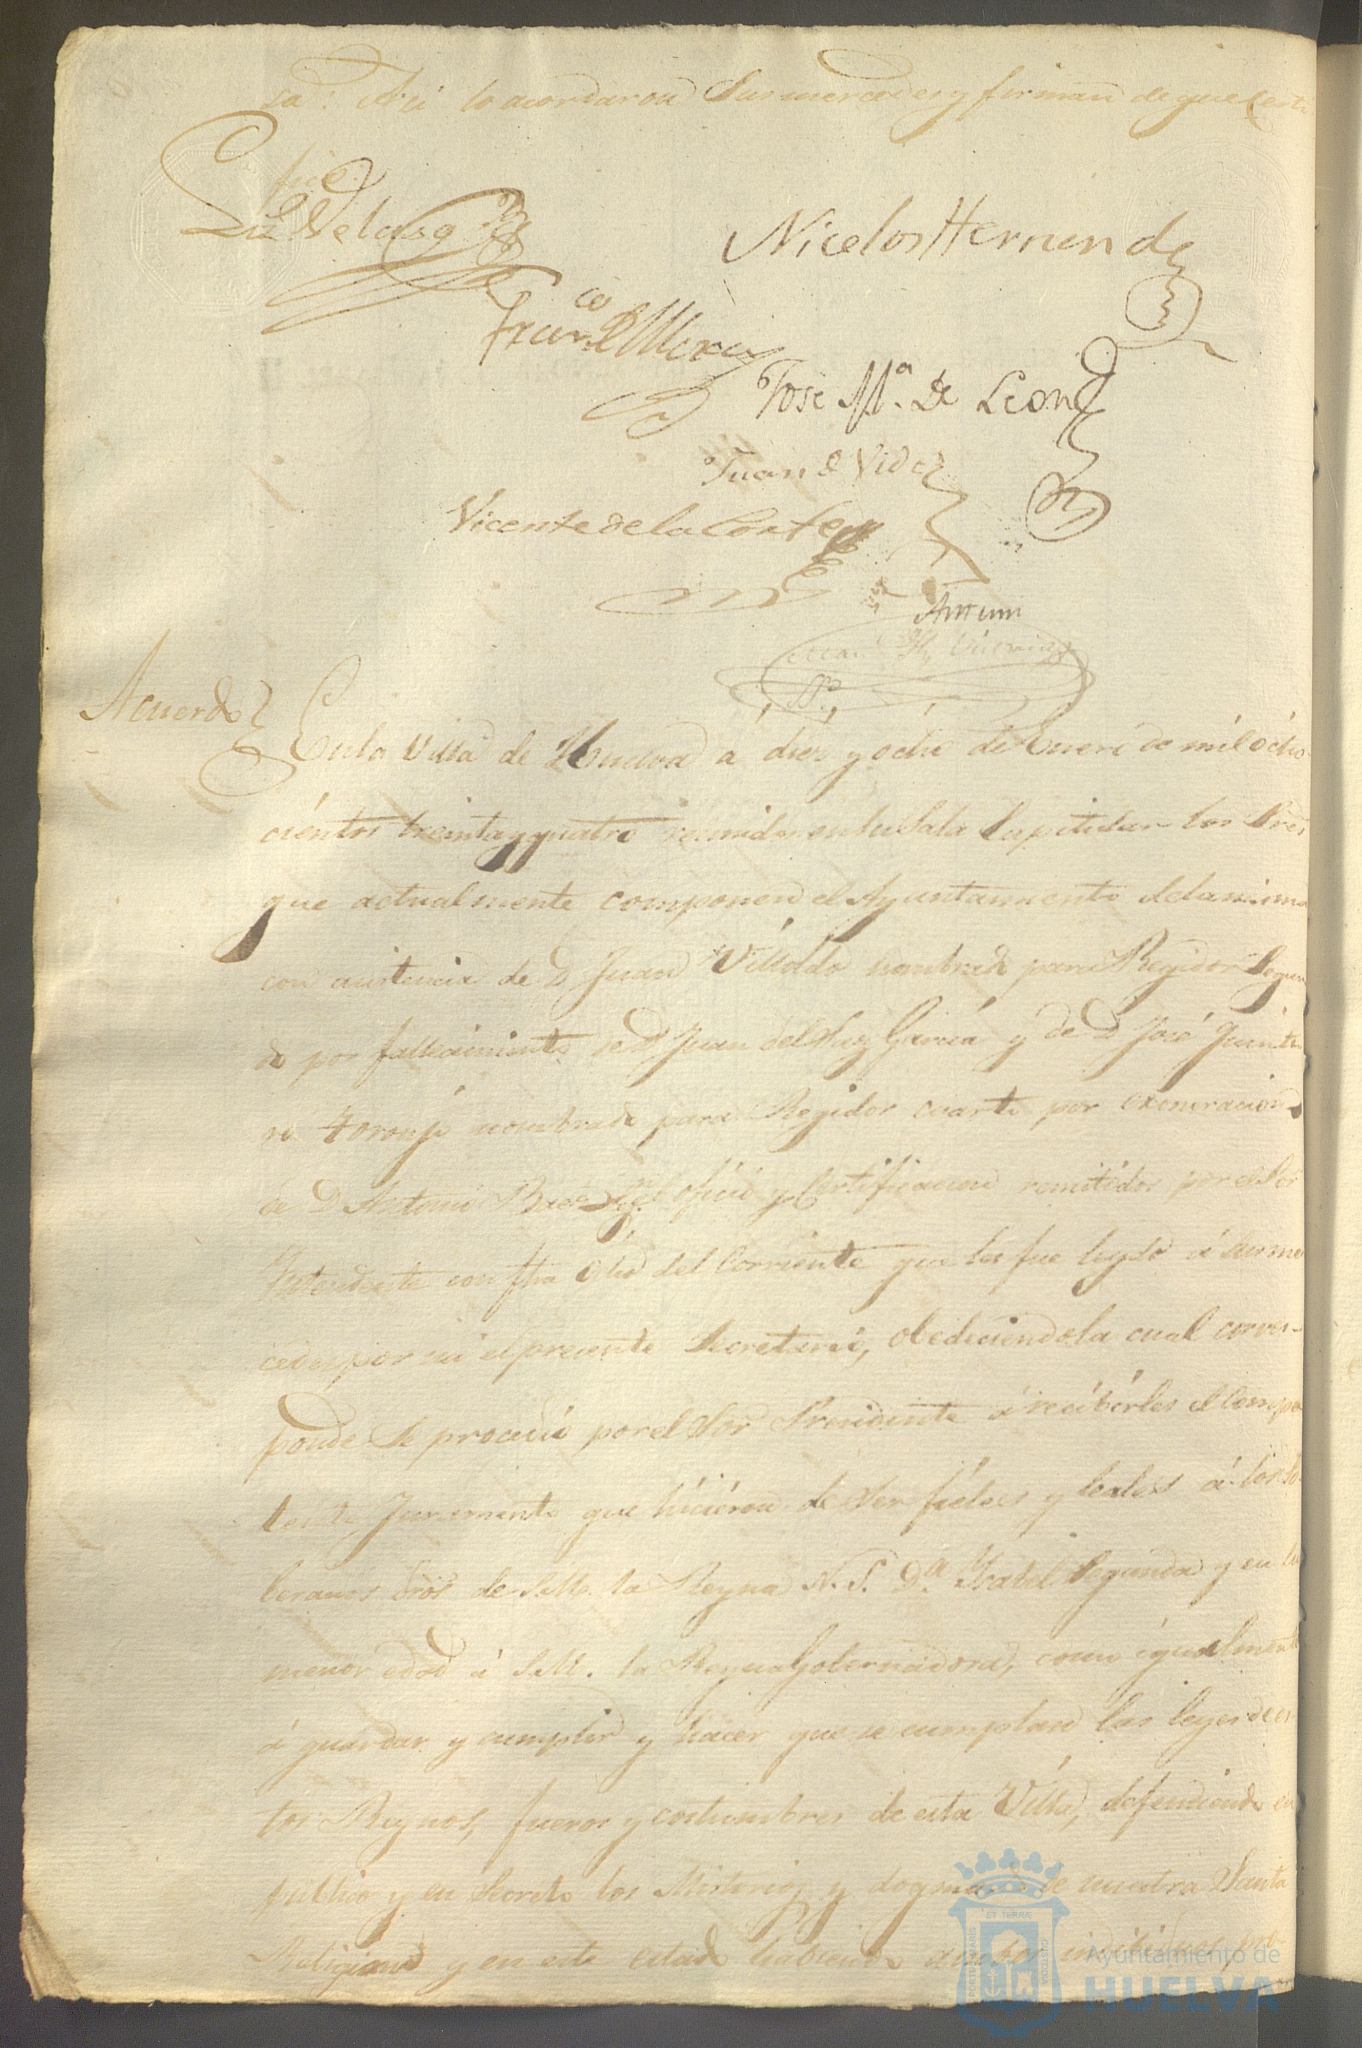 sa: Asi lo acordaron Sus mercedes y firman de que Certi
fico.
Velasq
Nicolas Hernand
Franco. de Mora
Jose Ma. de Leon
Juan d Vides
Vicente de la Corte
Ante mi
Acuerdo
En la Villa de Huelva á dies y ocho de Enero de mil ocho-
cientos treinta y quatro reunidos en su Sala Capitular los Sres
que actualmente componen el Ayuntamiento de la misma
con asistencia de D Juan Villoldo nombrado para Regidor Segun
do por fallecimiento de D Juan del Garcia y de D José Quinte
ro Toronjo nombrado para Regidor cuarto por exoneracion
de D Antonio Baez oficio y Certificacion remitidos por el Sor
Intendente con fha ocho del Corriente que les fue leydo á sus mer
cedes por mi el presente Secretario, obedeciendola cual corres-
ponde se procedió por el Sor Presidente á recibirles el Compe
tente Juramento que hicieron de ser fieles y leales á los So
beranos dros de S.M. la Reyna N.S. Da Ysabel Segunda y en su
menor edad á S.M. la Reyna Gobernadora, como igualmente
á guardar y cumplir y hacer que se cumplan las leyes de es
tos Reynos, fueros y costumbres de esta Villa, defendiendo en
publico y en Secreto los Misterios y dogma de nuestra Santa
Religion y en este estado habiendo ambos individuos
ET TERRÆ
Ayuntamiento de
HUELVA